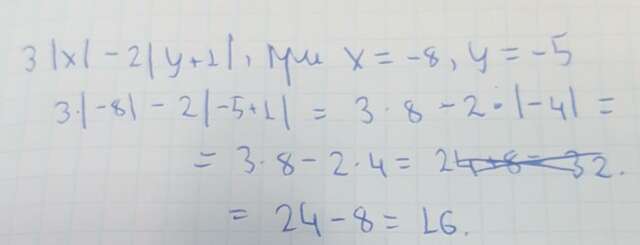 3|x| - 2|y+1|, при x = -8, y = -5
3·|-8| - 2|-5+1| = 3·8 - 2·|-4| =
= 3·8 - 2·4 = 24+8 = 32.
= 24 - 8 = 16.